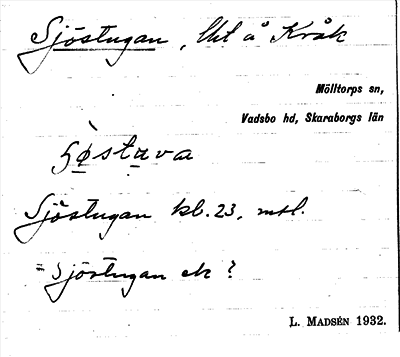 Sjöstugan, lht å Kråk
Mölltorps sn,
Vadsbo hd, Skaraborgs län
Sjöstugan kl. 23, mtl.
= Sjöstugan ek ?
L. MADSÉN 1932.